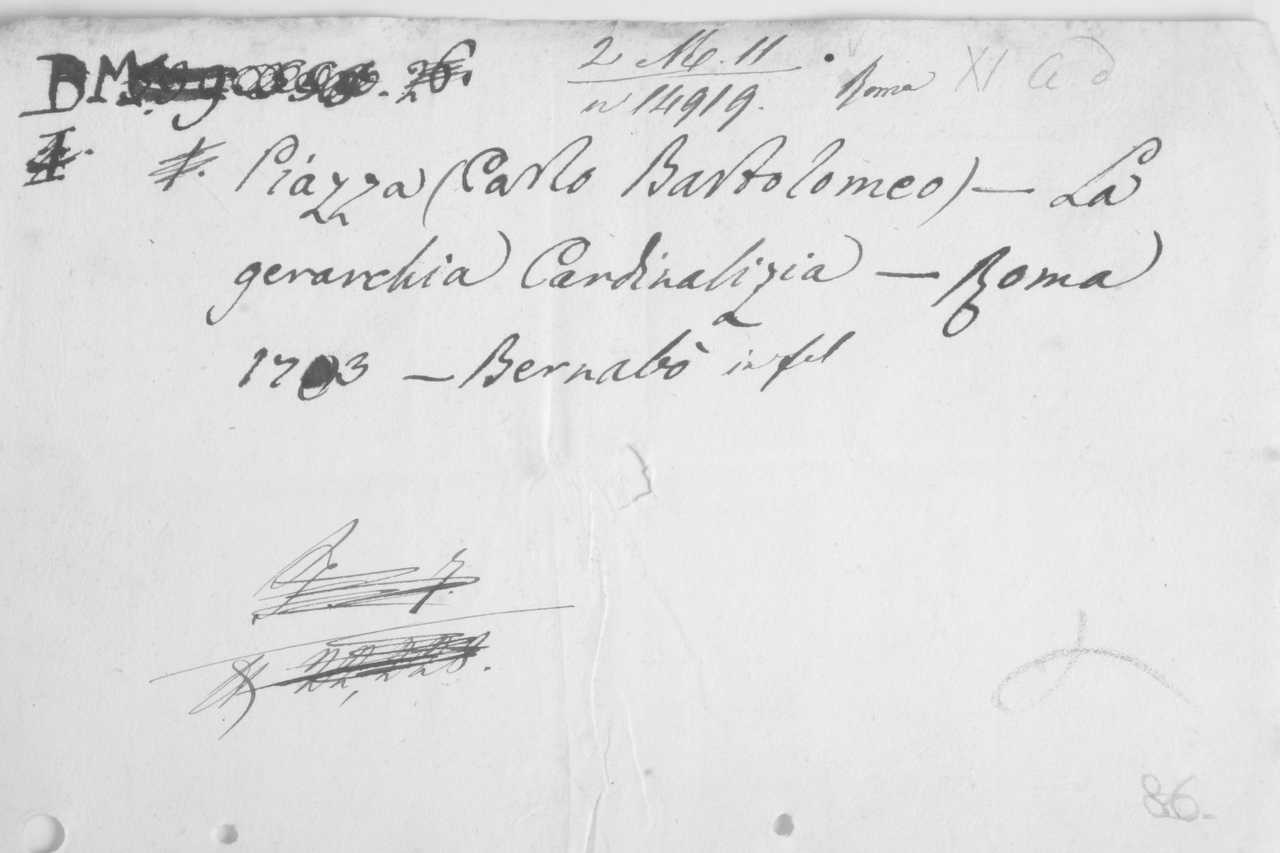 BM
2 M. 11
n° 14919.
Roma
XI
Piazza (Carlo Bartolomeo) — La
gerarchia Cardinalizia — Roma
1703 — Bernabò in fol
86.